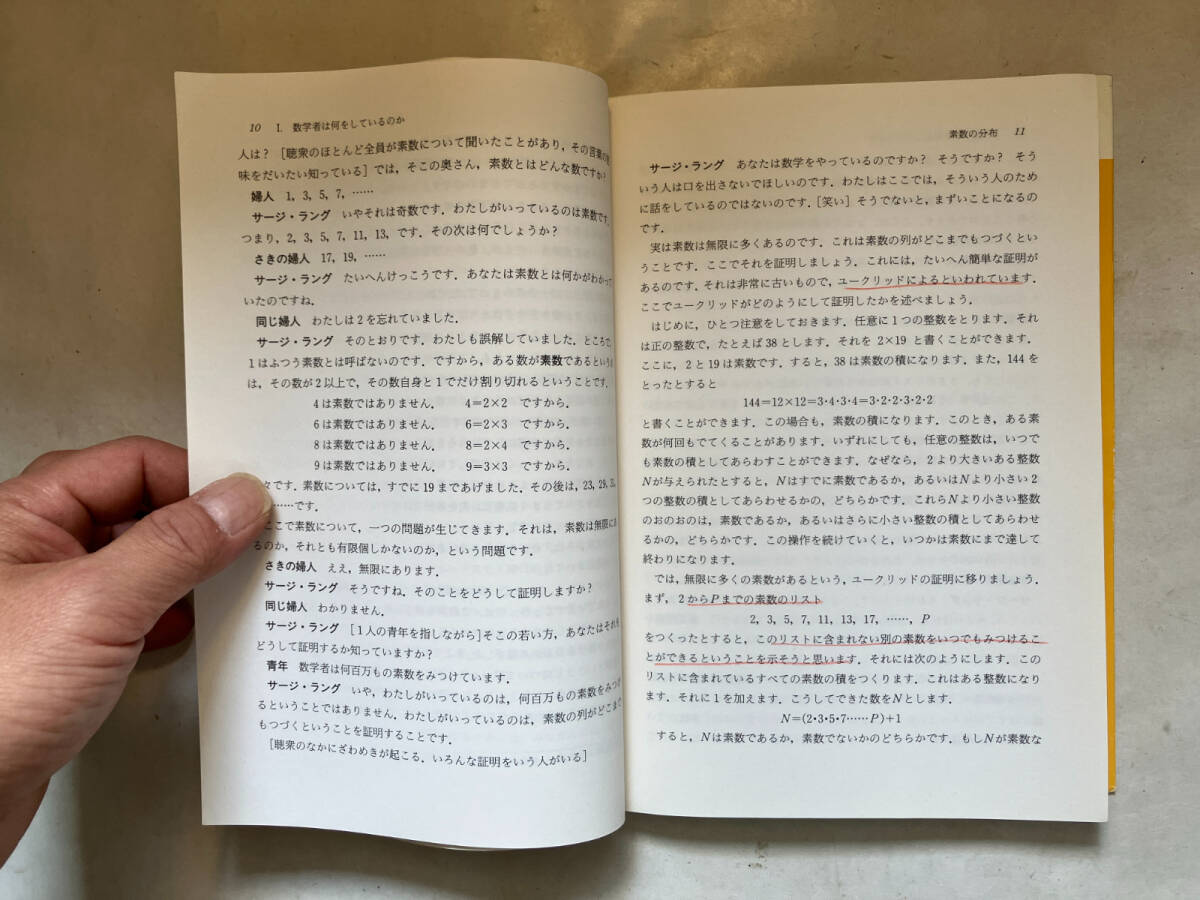 10 I. 数学者は何をしているのか
人は? [聴衆のほとんど全員が素数について聞いたことがあり,その言葉の意
味をだいたい知っている]では,そこの奥さん,素数とはどんな数ですか?
婦人 1, 3, 5, 7, ……
サージ・ラング いやそれは奇数です.わたしがいっているのは素数です.
つまり,2, 3, 5, 7, 11, 13, です.その次は何でしょうか?
さきの婦人 17, 19, ……
サージ・ラング たいへんけっこうです.あなたは素数とは何かがわかって
いたのですね.
同じ婦人 わたしは2を忘れていました.
サージ・ラング そのとおりです.わたしも誤解していました.ところで,
1はふつう素数とは呼ばないのです.ですから,ある数が素数であるという
は,その数が2以上で,その数自身と1でだけ割り切れるということです.
4は素数ではありません. 4=2×2 ですから.
6は素数ではありません. 6=2×3 ですから.
8は素数ではありません. 8=2×4 ですから.
9は素数ではありません. 9=3×3 ですから.
々です.素数については,すでに19まであげました.その後は,23, 29, 31,
……です.
ここで素数について,一つの問題が生じてきます.それは,素数は無限にあ
るのか,それとも有限個しかないのか,という問題です.
さきの婦人 ええ,無限にあります.
サージ・ラング そうですね.そのことをどうして証明しますか?
同じ婦人 わかりません.
サージ・ラング [1人の青年を指しながら]そこの若い方,あなたはそれを
どうして証明するか知っていますか?
青年 数学者は何百万もの素数をみつけています.
サージ・ラング いや,わたしがいっているのは,何百万もの素数をみつけ
るということではありません.わたしがいっているのは,素数の列がどこまで
もつづくということを証明することです.
[聴衆のなかにざわめきが起こる.いろんな証明をいう人がいる]
素数の分布 11
サージ・ラング あなたは数学をやっているのですか? そうですか? そう
いう人は口を出さないでほしいのです.わたしはここでは,そういう人のため
に話をしているのではないのです.[笑い]そうでないと,まずいことになるの
です.
実は素数は無限に多くあるのです.これは素数の列がどこまでもつづくとい
うことです.ここでそれを証明しましょう.これには,たいへん簡単な証明が
あるのです.それは非常に古いもので,ユークリッドによるといわれています.
ここでユークリッドがどのようにして証明したかを述べましょう.
はじめに,ひとつ注意をしておきます.任意に1つの整数をとります.それ
は正の整数で,たとえば38とします.それを 2×19 と書くことができます.
ここに,2と19は素数です.すると,38は素数の積になります.また,144を
とったとすると
144=12×12=3·4·3·4=3·2·2·3·2·2
と書くことができます.この場合も,素数の積になります.このとき,ある素
数が何回もでてくることがあります.いずれにしても,任意の整数は,いつで
も素数の積としてあらわすことができます.なぜなら,2より大きいある整数
Nが与えられたとすると,Nはすでに素数であるか,あるいはNより小さい2
つの整数の積としてあらわせるかの,どちらかです.これらNより小さい整数
のおのおのは,素数であるか,あるいはさらに小さい整数の積としてあらわせ
るかの,どちらかです.この操作を続けていくと,いつかは素数にまで達して
終わりになります.
では,無限に多くの素数があるという,ユークリッドの証明に移りましょう.
まず,2からPまでの素数のリスト
2, 3, 5, 7, 11, 13, 17, ……, P
をつくったとすると,このリストに含まれない別の素数をいつでもみつけるこ
とができるということを示そうと思います.それには次のようにします.この
リストに含まれているすべての素数の積をつくります.これはある整数になり
ます.それに1を加えます.こうしてできた数をNとします.
N=(2·3·5·7……P)+1
すると,Nは素数であるか,素数でないかのどちらかです.もしNが素数な